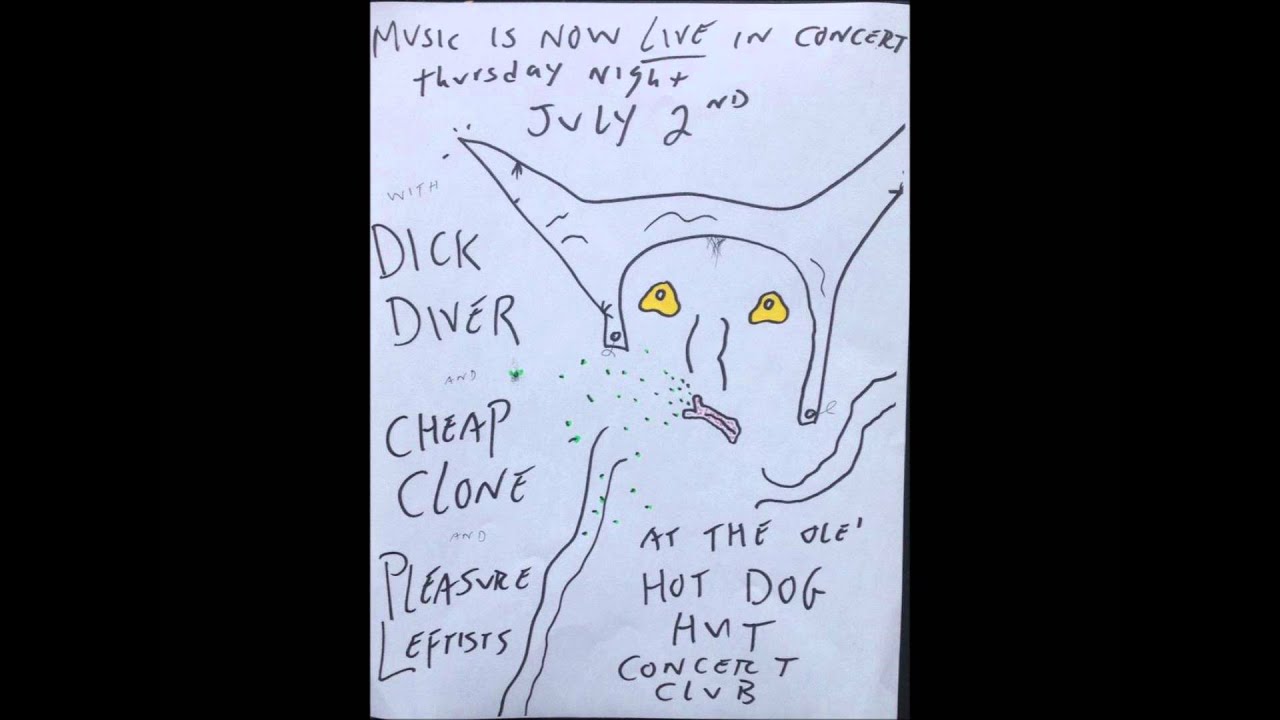 MUSIC IS NOW LIVE IN CONCERT
thursday night
JULY 2ND
WITH
DICK
DIVER
AND
CHEAP
CLONE
AND
PLEASURE
LEFTISTS
AT THE OLE'
HOT DOG
HUT
CONCERT
CLUB